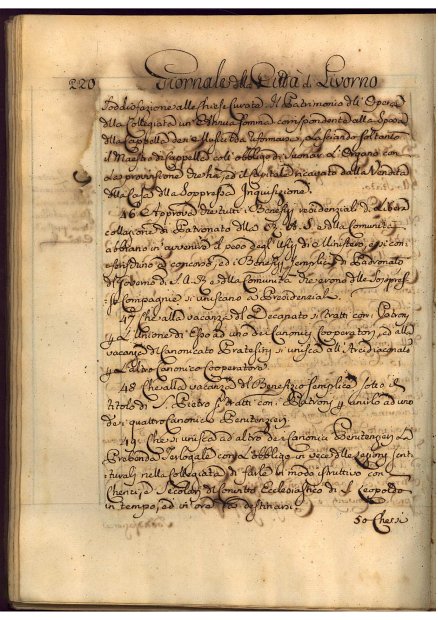 220 Giornale della Città di Livorno
Soddisfazione alle Chiese Curate. Il Patrimonio dell' Opera
della Collegiata un' annua somma corrispondente alla spesa
della Cappella dei Musici da riformarsi, lasciando soltanto
il Maestro di Cappella coll' obbligo di suonar l' Organo con
la provvisione che ha, ed il Capitale ricavato dalla Vendita
della Casa della soppressa Inquisizione.
46. Approva che tutti i Benefizj residenziali di libera
collazione di Patronato della A. R. S. e della Comunità
abbiano in avvenire il peso degl' Ufizj di Ministero, e si con-
feriscano a concorso, ed i Benefizj semplici di Padronato
del Governo di S. A. R. e della Comunità che erono delle soppres-
se Compagnie si uniscano a Residenziali.
47. Che alla vacanza del Decanato si tratti con i Patroni
p l' Unione di Esso ad uno dei Canonici Cooperatori, ed alla
vacanza del Canonicato Pratesini si unisca all' Arcidiaconale
p l' altro Canonico Cooperatore.
48. Che alla vacanza del Benefizio semplice sotto il
titolo di S. Pietro si tratti con i Patroni p unirlo ad uno
dei quattro Canonici Penitenzieri.
49. Che si unisca ad altro dei Canonici Penitenzieri la
Prebenda Teologale con l' obbligo in vece delle lezioni scrit-
turali nella Collegiata di farle in modo istruttivo con
Cherici, e Secolari del Convitto Ecclesiastico di S. Leopoldo
in tempo, ed in ora da destinarsi.
50 Che si